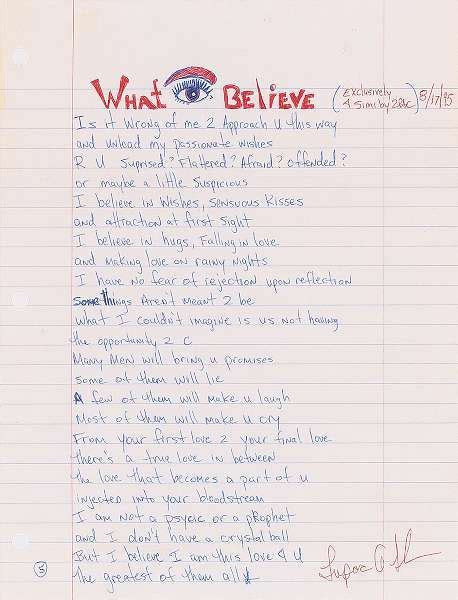 What Believe (Exclusively 4 Simi by 2PAC) 8/17/95
Is it wrong of me 2 Approach U this way
and unload my passionate wishes
R U Suprised? Flatered? Afraid? Offended?
or maybe a little Suspicious
I believe in Wishes, Sensuous Kisses
and attraction at first sight
I believe in hugs, Falling in love
and making love on rainy nights
I have no fear of rejection upon reflection
Some things Arent meant 2 be
what I couldn't imagine is us not having
the opportunity 2 C
Many Men will bring u promises
some of them will lie
A few of them will make u laugh
Most of them will make u cry
From your first love 2 your final love
there's a true love in between
the love that becomes a part of u
injected into your bloodstream
I am not a psycic or a prophet
and I don't have a crystal ball
But I believe I am this love 4 U
the greatest of them all
3